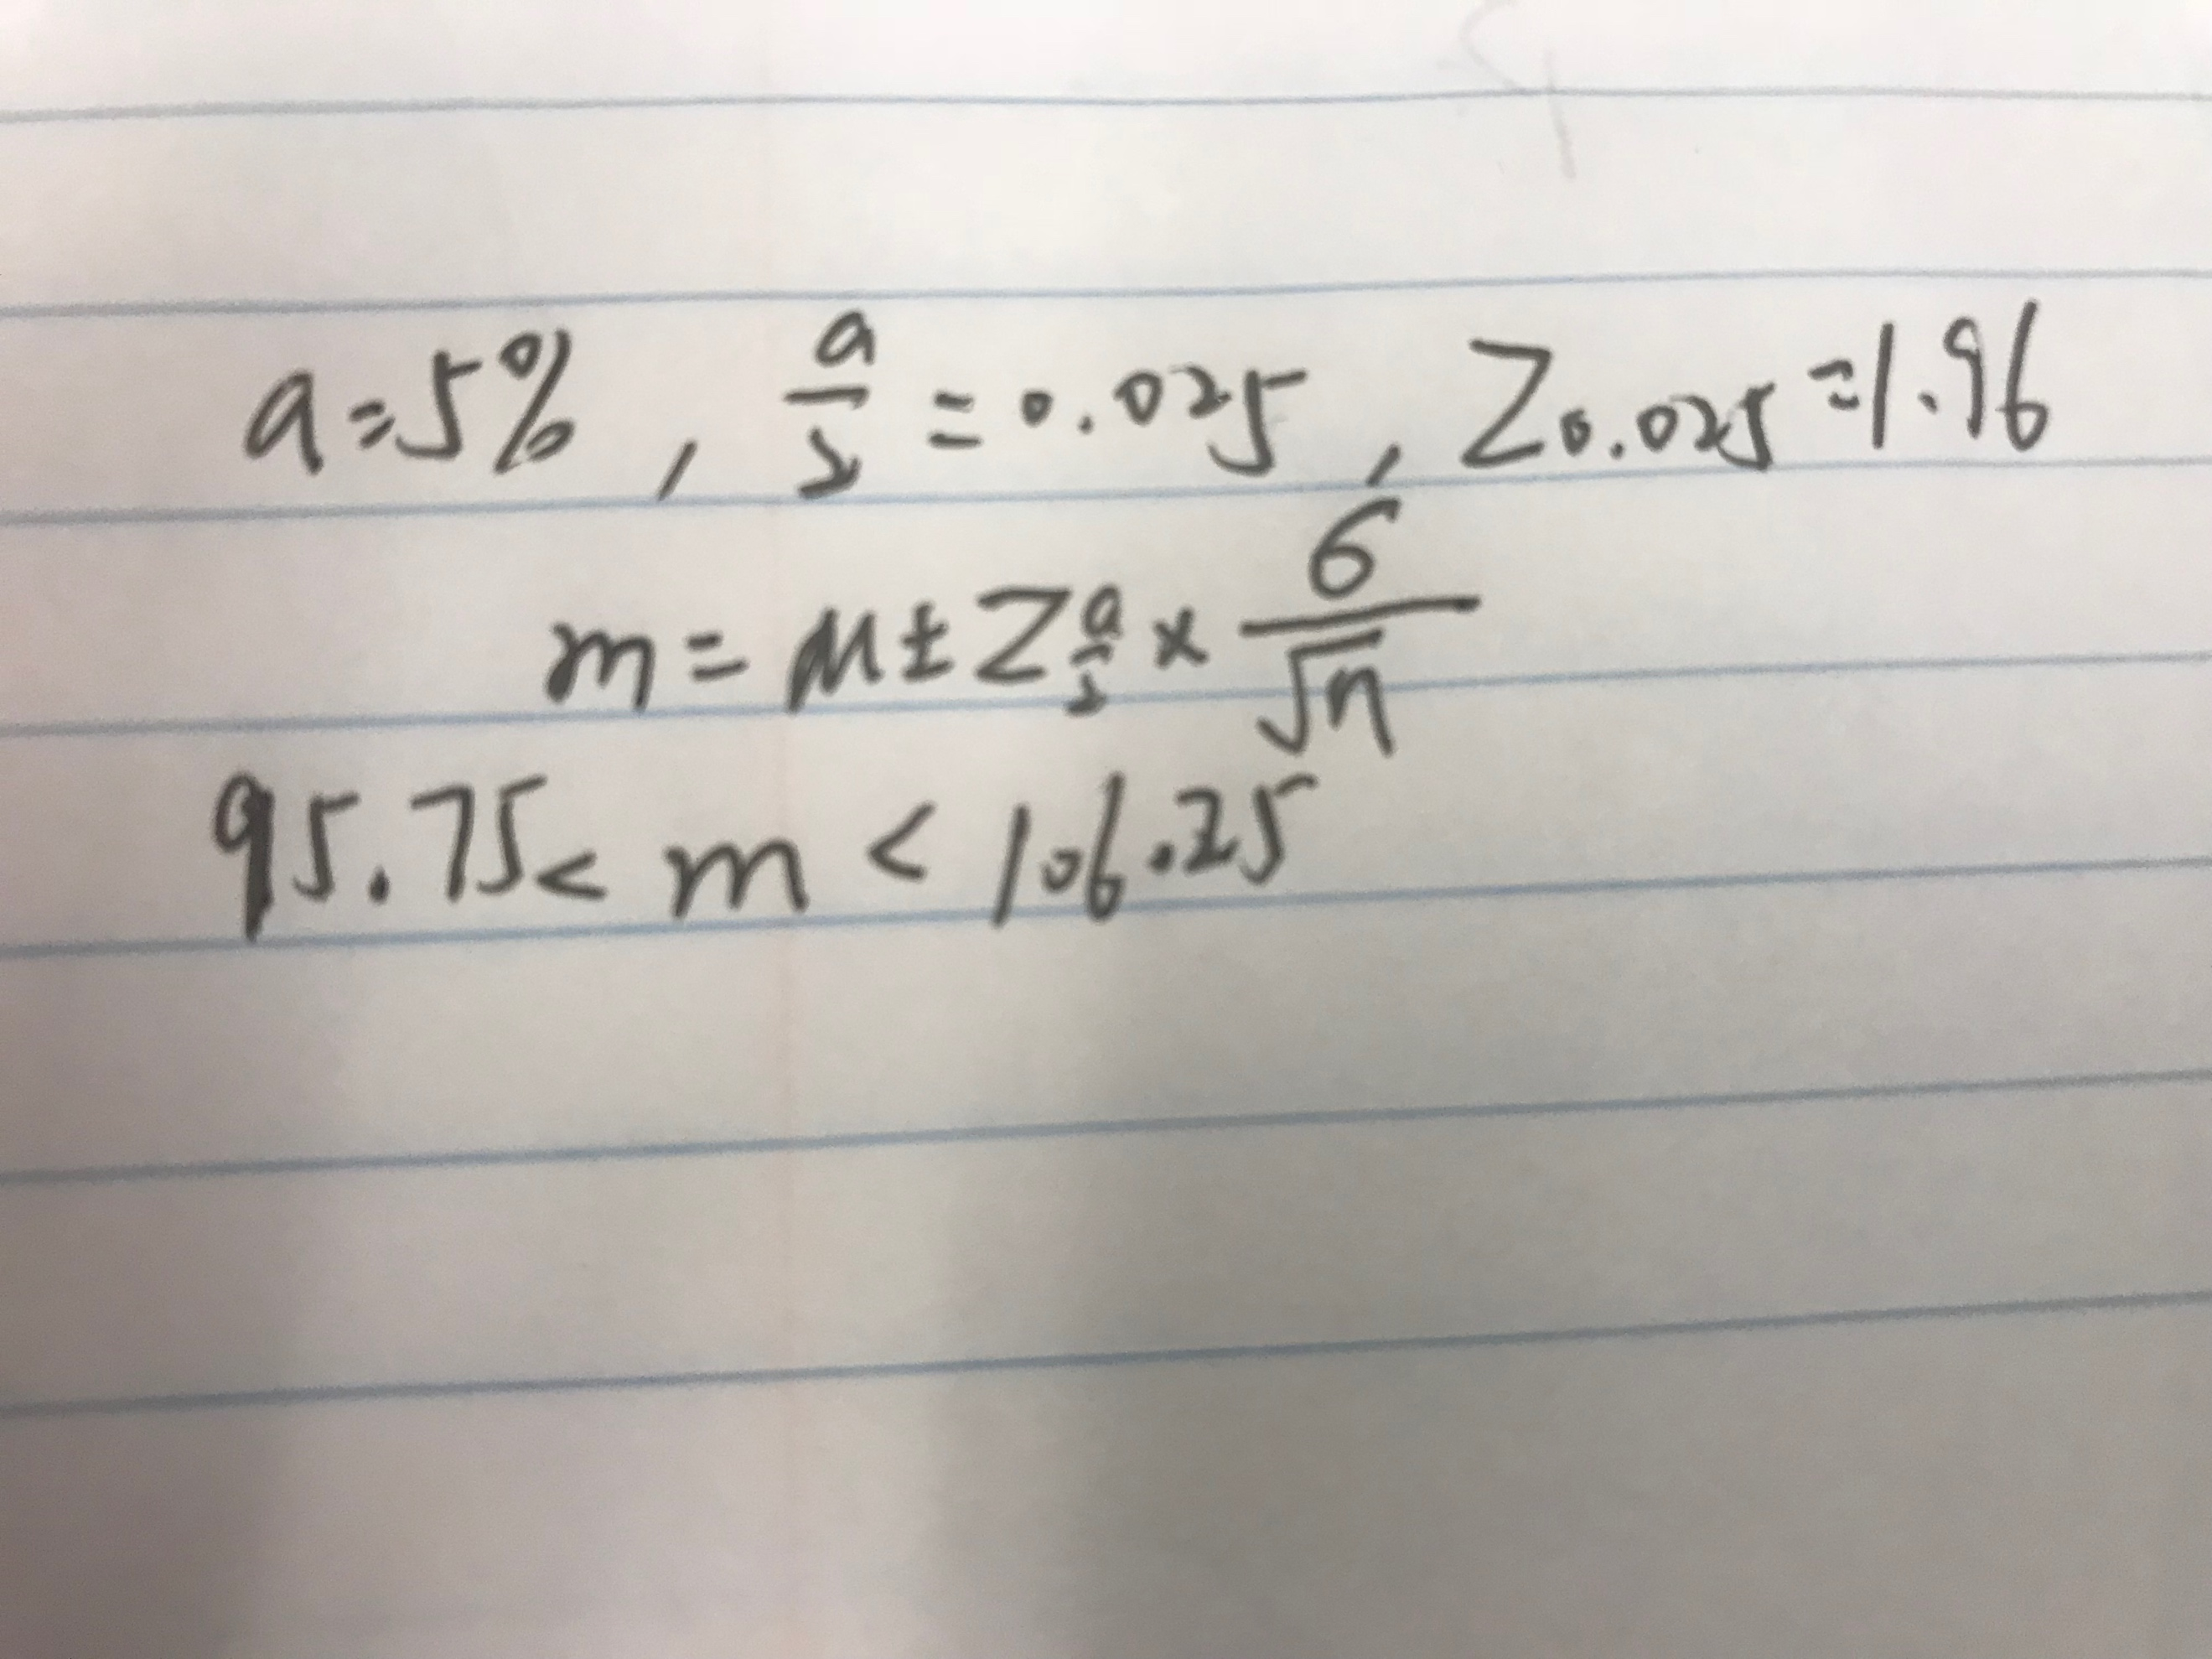 a=5%, a/2=0.025, Z0.025=1.96
m=μ±Za/2×σ/√n
95.75<m<106.25